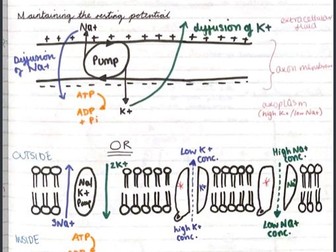 Maintaining the resting potential
diffusion of K+
extracellular
fluid
Na+
+ + + + + + + + + + + + + +
Diffusion
of Na+
Pump
axon membrane
ATP
ADP
+ Pi
K+
axoplasm
(high K+/low Na+)
OUTSIDE
OR
2K+
Low K+
conc.
High Na+
conc.
Na/
K+
Pump
K+
Na+
3Na+
high K+
conc.
Low Na+
conc.
INSIDE
ATP